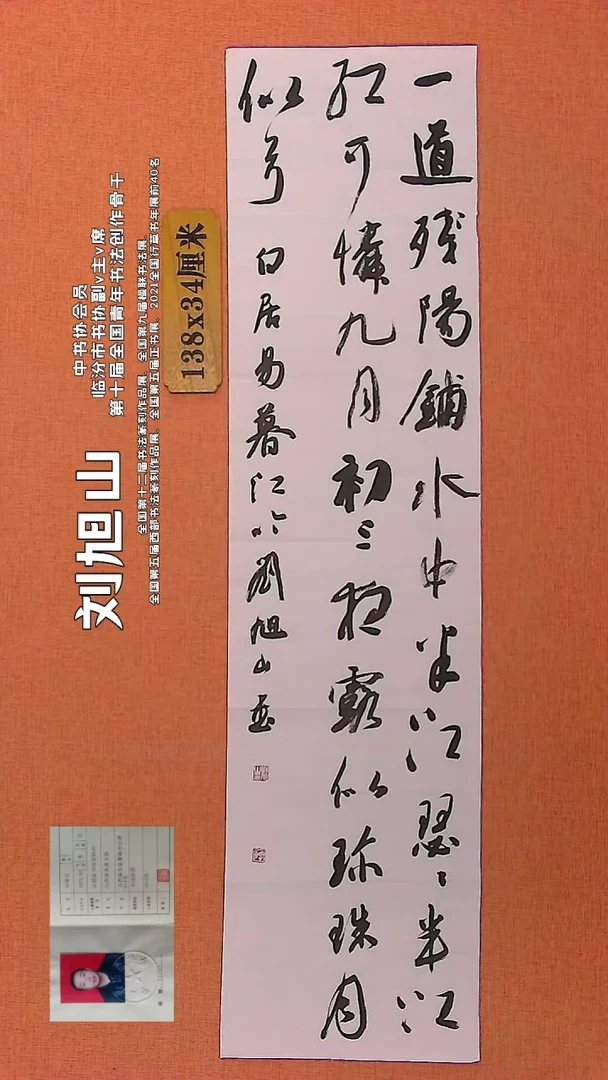 一道残陽鋪水中半江瑟〻半江
红可憐九月初三夜露似珍珠月
似弓 白居易暮江吟 劉旭山
138x34厘米
中书协会员
临汾市书协副v主v席
第十届全国青年书法创作骨干
刘旭山
全国第十二届书法篆刻作品展、全国第九届楹联书法展、
全国第五届西部书法篆刻作品展、全国第五届正书展、2021全国行草书年展前40名